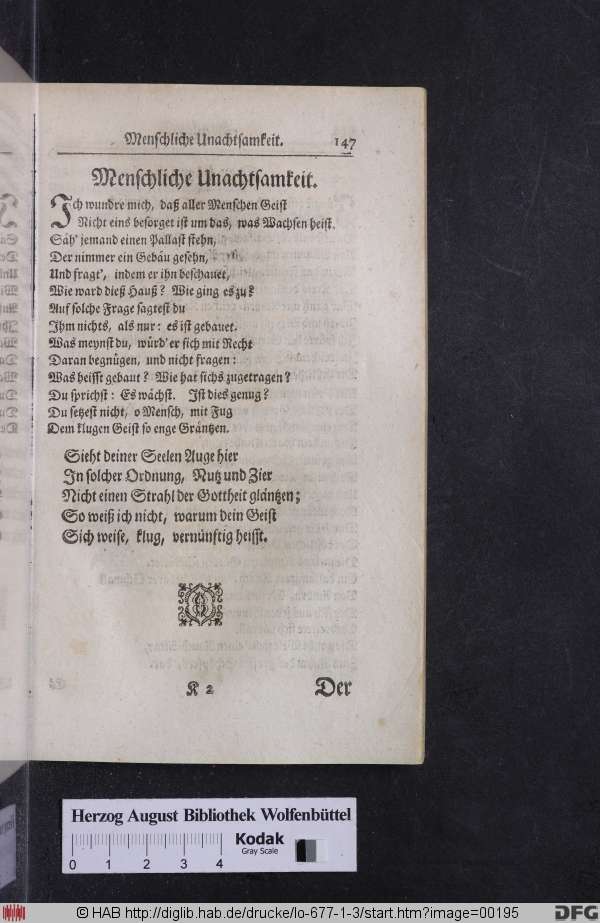 Menschliche Unachtsamkeit. 147
Menschliche Unachtsamkeit.
Ich wundre mich, daß aller Menschen Geist
Nicht eins besorget ist um das, was Wachsen heist.
Säh' jemand einen Pallast stehn,
Der nimmer ein Gebäu gesehn,
Und fragt', indem er ihn beschauet,
Wie ward dieß Hauß? Wie ging es zu?
Auf solche Frage sagtest du
Ihm nichts, als nur: es ist gebauet.
Was meynst du, würd' er sich mit Recht
Daran begnügen, und nicht fragen:
Was heisst gebaut? Wie hat sichs zugetragen?
Du sprichst: Es wächst. Ist dies genug?
Du setzest nicht, o Mensch, mit Fug
Dem klugen Geist so enge Gräntzen.
Sieht deiner Seelen Auge hier
In solcher Ordnung, Nutz und Zier
Nicht einen Strahl der Gottheit gläntzen;
So weiß ich nicht, warum dein Geist
Sich weise, klug, vernünftig heisst.
K 2 Der
Herzog August Bibliothek Wolfenbüttel
Kodak
Gray Scale
0 1 2 3 4
© HAB http://diglib.hab.de/drucke/lo-677-1-3/start.htm?image=00195
DFG